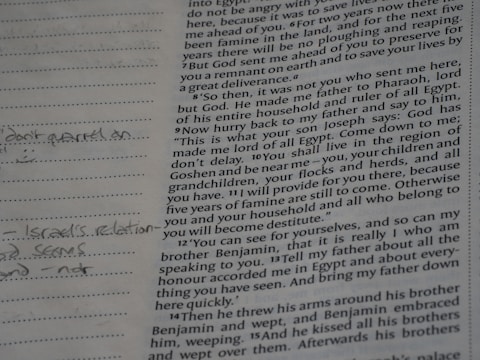 "don't quarrel on
– Israel's relation-
seems
and – not
into Egypt!
do not be angry with you
here, because it was to save lives
me ahead of you. 6For two years now there
been famine in the land, and for the next five
years there will be no ploughing and reaping.
7But God sent me ahead of you to preserve for
you a remnant on earth and to save your lives by
a great deliverance.a
8'So then, it was not you who sent me here,
but God. He made me father to Pharaoh, lord
of his entire household and ruler of all Egypt.
9Now hurry back to my father and say to him,
"This is what your son Joseph says: God has
made me lord of all Egypt. Come down to me;
don't delay. 10You shall live in the region of
Goshen and be near me – you, your children and
grandchildren, your flocks and herds, and all
you have. 11I will provide for you there, because
five years of famine are still to come. Otherwise
you and your household and all who belong to
you will become destitute."
12'You can see for yourselves, and so can my
brother Benjamin, that it is really I who am
speaking to you. 13Tell my father about all the
honour accorded me in Egypt and about every-
thing you have seen. And bring my father down
here quickly.'
14Then he threw his arms around his brother
Benjamin and wept, and Benjamin embraced
him, weeping. 15And he kissed all his brothers
and wept over them. Afterwards his brothers
palace